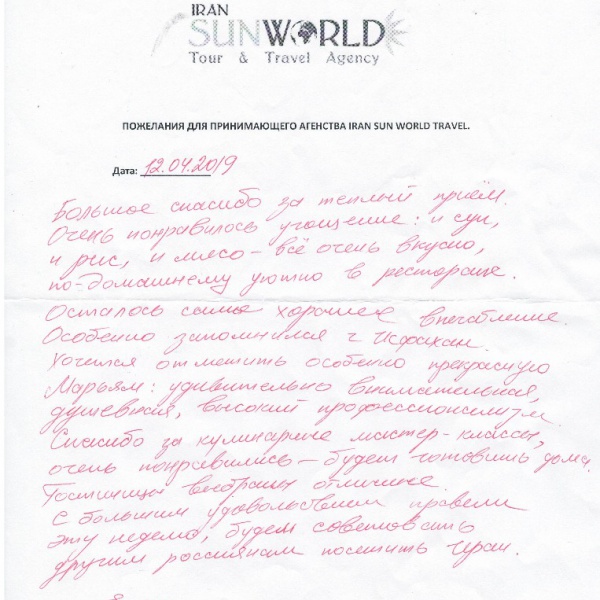 IRAN
SUNWORLD
Tour & Travel Agency
ПОЖЕЛАНИЯ ДЛЯ ПРИНИМАЮЩЕГО АГЕНСТВА IRAN SUN WORLD TRAVEL.
Дата: 12.04.2019
Большое спасибо за теплый приём.
Очень понравилось угощение: и суп,
и рис, и мясо – всё очень вкусно,
по-домашнему уютно в ресторане.
Осталось самое хорошее впечатление
Особенно запомнился г. Исфахан.
Хочется отметить особенно прекрасную
Марьям: удивительно внимательная,
душевная, высокий профессионализм.
Спасибо за кулинарные мастер-классы,
очень понравились – будем готовить дома.
Гостиницы выбраны отлично.
С большим удовольствием провели
эту неделю, будем советовать
другим россиянам посетить Иран.